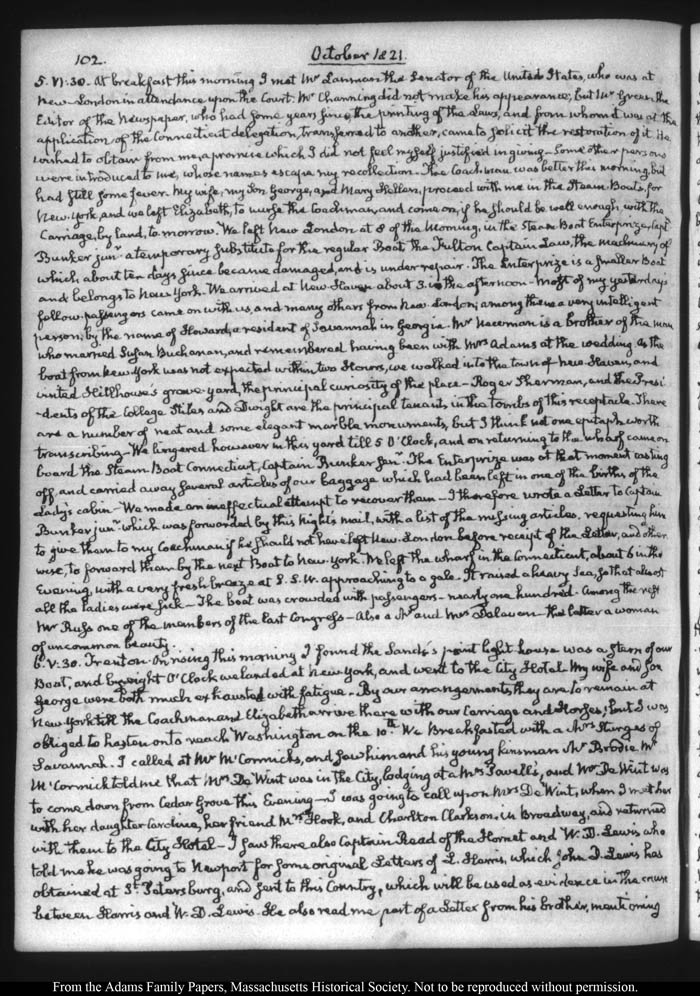 102.
October 1821.
5. VI:30. At breakfast this morning I met Mr Lanman the Senator of the United States, who was at
New-London in attendance upon the Court. Mr Channing did not make his appearance; but Mr Green the
Editor of the Newspaper, who had some years since the printing of the Laws, and from whom it was at the
application of the Connecticut delegation, transferred to another, came to solicit the restoration of it. He
wished to obtain from me, a promise which I did not feel myself justified in giving. Some other persons
were introduced to me, whose names escape my recollection. The Coachman was better this morning, but
had still some fever. My wife, my Son George, and Mary Hellen, proceed with me in the Steam Boats, for
New York, and we left Elizabeth, to nurse the Coachman, and come on, if he should be well enough, with the
Carriage, by land, to morrow. We left New London at 8 of the Morning, in the Steam Boat Enterprize, Capt
Bunker junr. a temporary substitute for the regular Boat the Fulton Captain Law, the machinery of
which about ten days since became damaged, and is under repair. The Enterprize is a smaller Boat
and belongs to New York. We arrived at New Haven about 3. in the afternoon—Most of my yesterdays
fellow-passengers came on with us, and many others from New London; among them a very intelligent
person, by the name of Howard, a resident of Savannah in Georgia. Mr is a brother of the man
who married Susan Buchanan, and remembered having been with Mrs Adams at the wedding. As the
boat from New York was not expected within two Hours, we walked into the town of New Haven, and
visited Hillhouse's grove-yard, the principal curiosity of the place—Roger Sherman, and the Presi-
-dents of the College Stiles and Dwight are the principal tenants in the tombs of this receptacle. There
are a number of neat and some elegant marble monuments, but I think not one epitaph worth
transcribing—We lingered however in this yard till 5 O'Clock, and on returning to the wharf came on
board the Steam Boat Connecticut, Captain Bunker Senr. The Enterprize was at that moment casting
off, and carried away several articles of our baggage which had been left in one of the births of the
Lady's cabin—We made an ineffectual attempt to recover them—I therefore wrote a Letter to Captain
Bunker junr. which was forwarded by this night's mail, with a list of the missing articles, requesting him
to give them to my Coachman if he should not have left New-London before receipt of the Letter, and other
wise, to forward them by the next Boat to New-York. We left the wharf in the Connecticut, about 6 in the
Evening, with a very fresh breeze at S.S.W. approaching to a gale. It raised a heavy Sea, so that almost
all the ladies were sick—The boat was crowded with passengers—nearly one hundred. Among the rest
Mr Russ one of the members of the last Congress—Also a Mr and Mrs the latter a woman
of uncommon beauty.
6. V:30. Trenton. On rising this morning I found the Sands's point light-house was astern of our
Boat, and by eight O'Clock we landed at New York, and went to the City Hotel. My wife and son
George were both much exhausted with fatigue. By our arrangements they are to remain at
New York till the Coachman and Elizabeth arrive there with our Carriage and Horses; but I was
obliged to hasten on to reach Washington on the 10th. We Breakfasted with a Mrs Sturges of
Savannah. I called at Mr McCormick's, and saw him and his young kinsman Mr Brodie. Mr
McCormick told me that Mrs De Wint was in the City, lodging at a Mrs Savell's, and Mr De Wint was
to come down from Cedar Grove this Evening—I was going to call upon Mrs De Wint, when I met her
with her daughter Caroline, her friend Mrs Hook, and Charlton Clarkson, in Broadway, and returned
with them to the City Hotel—I saw there also Captain Read of the Hornet and W. D. Lewis who
told me he was going to Newport for some original Letters of L. Harris, which John D. Lewis has
obtained at St. Petersburg, and sent to this Country, which will be used as evidence in the cause
between Harris and W. D. Lewis. He also read me part of a Letter from his brother, mentioning
From the Adams Family Papers, Massachusetts Historical Society. Not to be reproduced without permission.